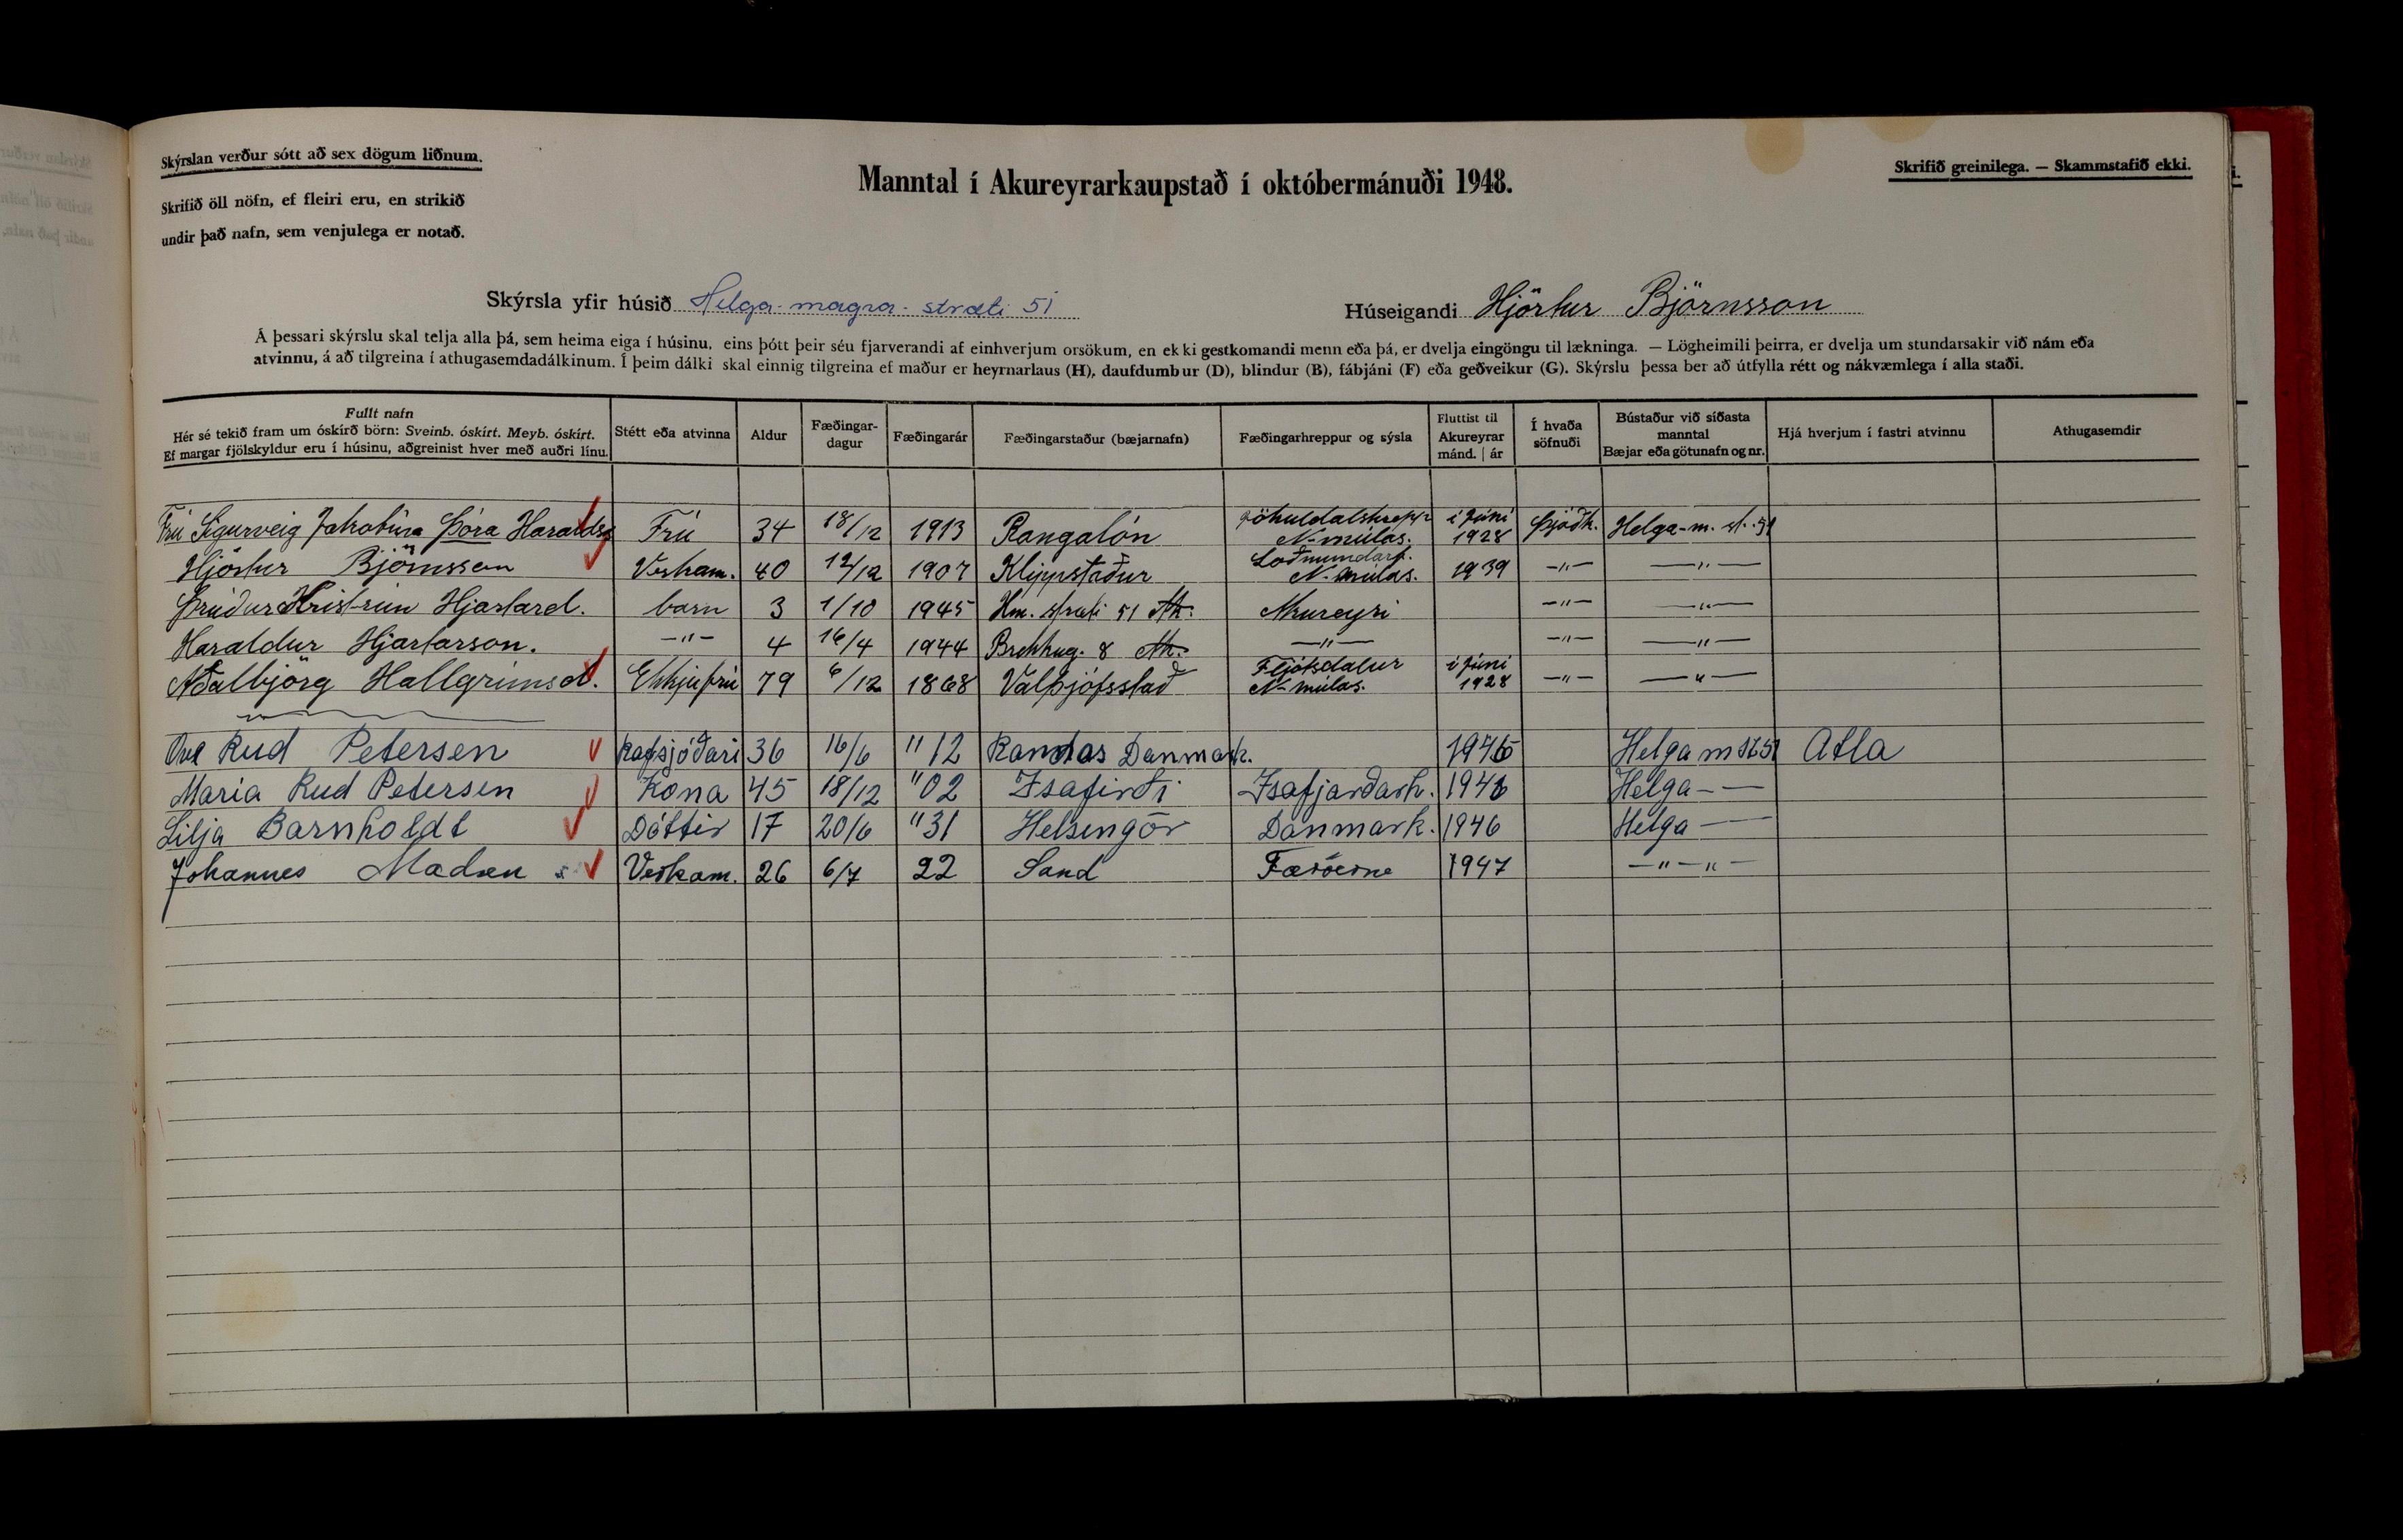 Skýrslan verður sótt að sex dögum liðnum.
Skrifið öll nöfn, ef fleiri eru, en strikið
undir það nafn, sem venjulega er notað.
Manntal í Akureyrarkaupstað í októbermánuði 1948.
Skrifið greinilega. — Skammstafið ekki.
Skýrsla yfir húsið Helga-magra-stræti 51
Húseigandi Hjörtur Björnsson
Á þessari skýrslu skal telja alla þá, sem heima eiga í húsinu, eins þótt þeir séu fjarverandi af einhverjum orsökum, en ekki gestkomandi menn eða þá, er dvelja eingöngu til lækninga. — Lögheimili þeirra, er dvelja um stundarsakir við nám eða
atvinnu, á að tilgreina í athugasemdadálkinum. Í þeim dálki skal einnig tilgreina ef maður er heyrnarlaus (H), daufdumbur (D), blindur (B), fábjáni (F) eða geðveikur (G). Skýrslu þessa ber að útfylla rétt og nákvæmlega í alla staði.
Fullt nafn
Hér sé tekið fram um óskírð börn: Sveinb. óskírt. Meyb. óskírt.
Ef margar fjölskyldur eru í húsinu, aðgreinist hver með auðri línu.
Stétt eða atvinna
Aldur
Fæðingar-
dagur
Fæðingarár
Fæðingarstaður (bæjarnafn)
Fæðingarhreppur og sýsla
Fluttist til
Akureyrar
mánd. | ár
Í hvaða
söfnuði
Bústaður við síðasta
manntal
Bæjar eða götunafn og nr.
Hjá hverjum í fastri atvinnu
Athugasemdir
Frú Sigurveig Jakobína Þóra Haraldsd Frú 34 18/12 1913 Rangalón Jökuldalshrepp N-múlas. í Júní 1928 Þjóðk. Helga-m. st. 51
Hjörtur Björnsson Verkam. 40 12/12 1907 Klippstaður Loðmundarf. N-múlas. 1939 —"— —"—
Þrúður Kristrún Hjartard. barn 3 1/10 1945 Hm. stræti 51 Ak. Akureyri —"— —"—
Haraldur Hjartarson. —"— 4 16/4 1944 Brekkug. 8 Ak. —"— —"— —"—
Aðalbjörg Hallgrímsd. Ekkjufrú 79 6/12 1868 Valþjófsstað Fljótsdalur N-múlas. í Júní 1928 —"— —"—
Ove Rud Petersen Rafsjóðari 36 16/6 "12 Randas Danmark. Helga m st 51 Atla
Maria Rud Petersen Kona 45 18/12 "02 Isafirði Isafjarðark. Helga — —
Lilja Barnholdt Dóttir 17 20/6 "31 Helsingör Danmark. 1946 Helga —
Johannes Madsen Verkam. 26 6/7 22 Sand Færöerne 1947 —"—"—